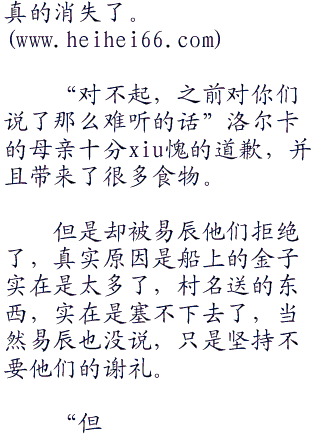 真的消失了。
(www.heihei66.com)
“对不起，之前对你们
说了那么难听的话”洛尔卡
的母亲十分xiu愧的道歉，并
且带来了很多食物。
但是却被易辰他们拒绝
了，真实原因是船上的金子
实在是太多了，村名送的东
西，实在是塞不下去了，当
然易辰也没说，只是坚持不
要他们的谢礼。
“但